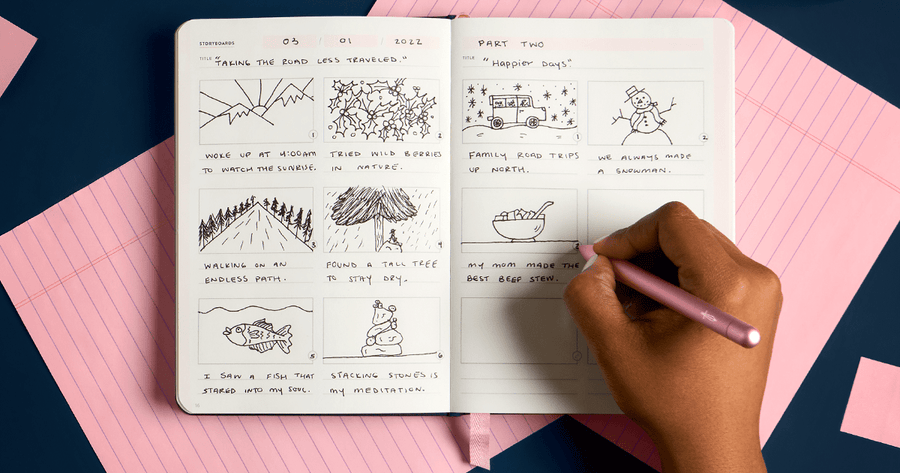 STORYBOARDS 03 / 01 / 2022
TITLE "TAKING THE ROAD LESS TRAVELED."
1
2
WOKE UP AT 4:00AM
TO WATCH THE SUNRISE.
TRIED WILD BERRIES
IN NATURE.
3
4
WALKING ON AN
ENDLESS PATH.
FOUND A TALL TREE
TO STAY DRY.
5
6
I SAW A FISH THAT
STARED INTO MY SOUL.
STACKING STONES IS
MY MEDITATION.
PART TWO
TITLE "Happier Days"
1
2
FAMILY ROAD TRIPS
UP NORTH.
WE ALWAYS MADE
A SNOWMAN.
MY MOM MADE THE
BEST BEEF STEW.